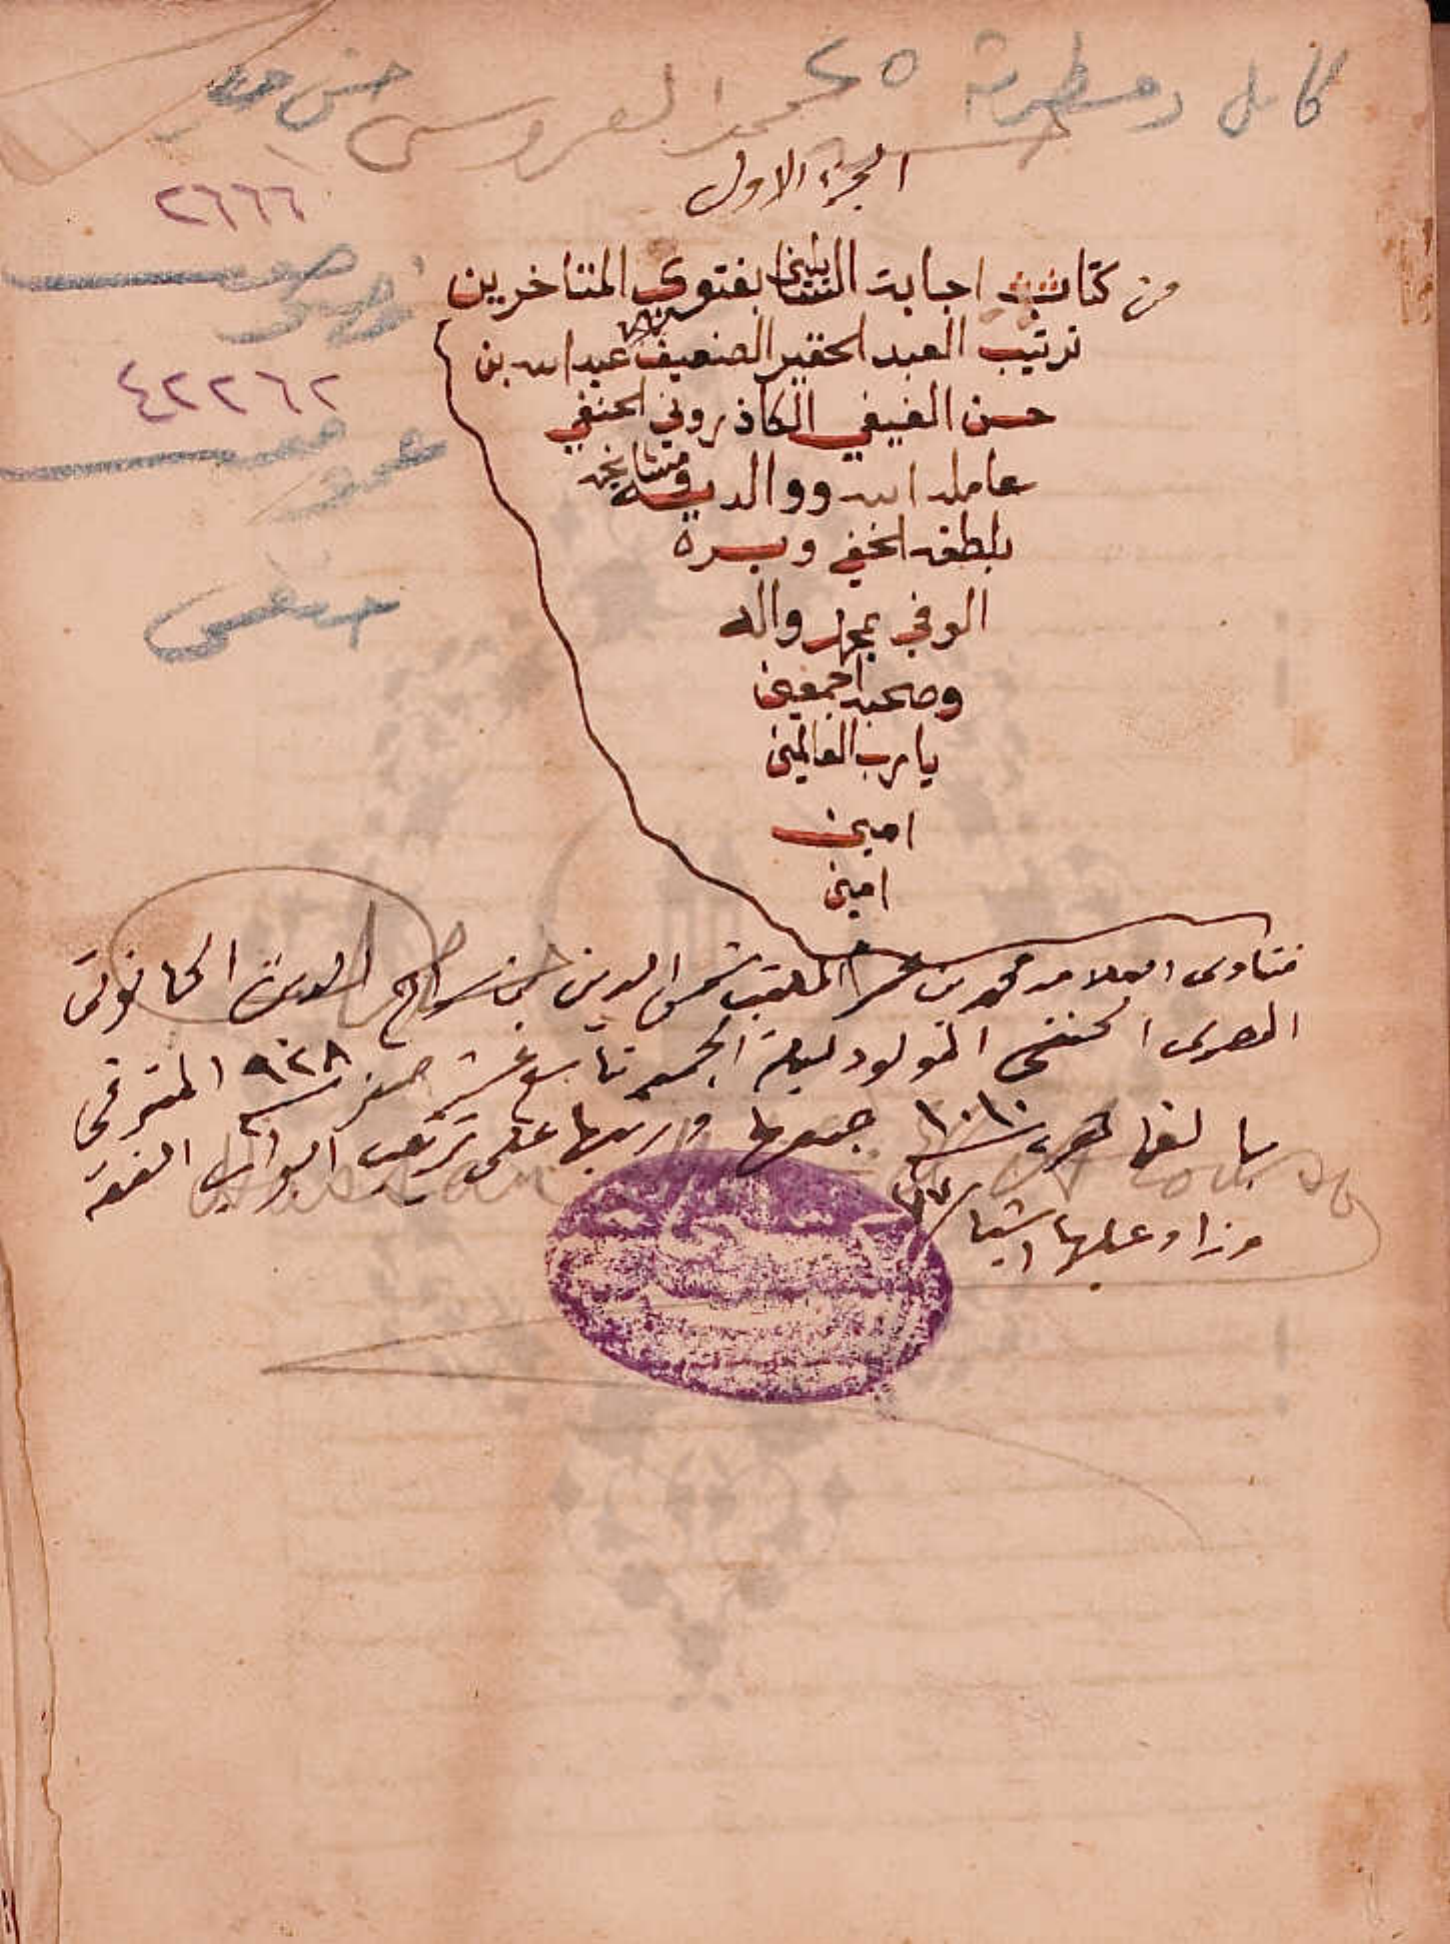 كامل
حسن
محمد العروسي
الجزء الاول
٢٦٦٦
من كتاب اجابة السائلين بفتوى المتاخرين
ترتيب العبد الحقير الضعيف عبد الله بن
٤٢٢٦٢
حسن العفيفي الكاذروني الحنفي
عامله الله ووالديه ومشايخه
بلطفه الخفي وبره
الوفي بمحمد واله
حنفى
وصحبه اجمعين
يا رب العالمين
امين
امين
فتاوى العلامة محمد بن عمر الملقب شمس الدين بن سراج الدين الحانوتى
المصرى الحنفى المولود ليلة الجمعة تاسع عشر صفر سنة ٩٢٨ المتوفى
بالقاهرة سنة ١٠١٠ جمعها ورتبها على ترتيب ابواب الفقه
وزاد عليها اشيا